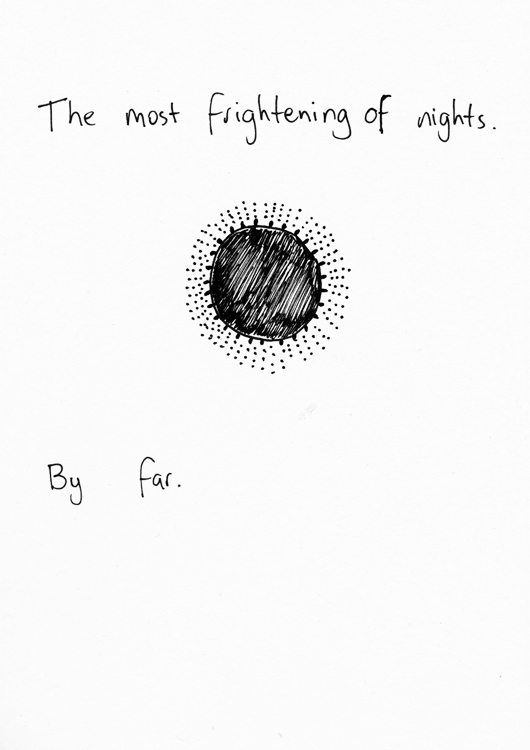 The most frightening of nights.
By far.